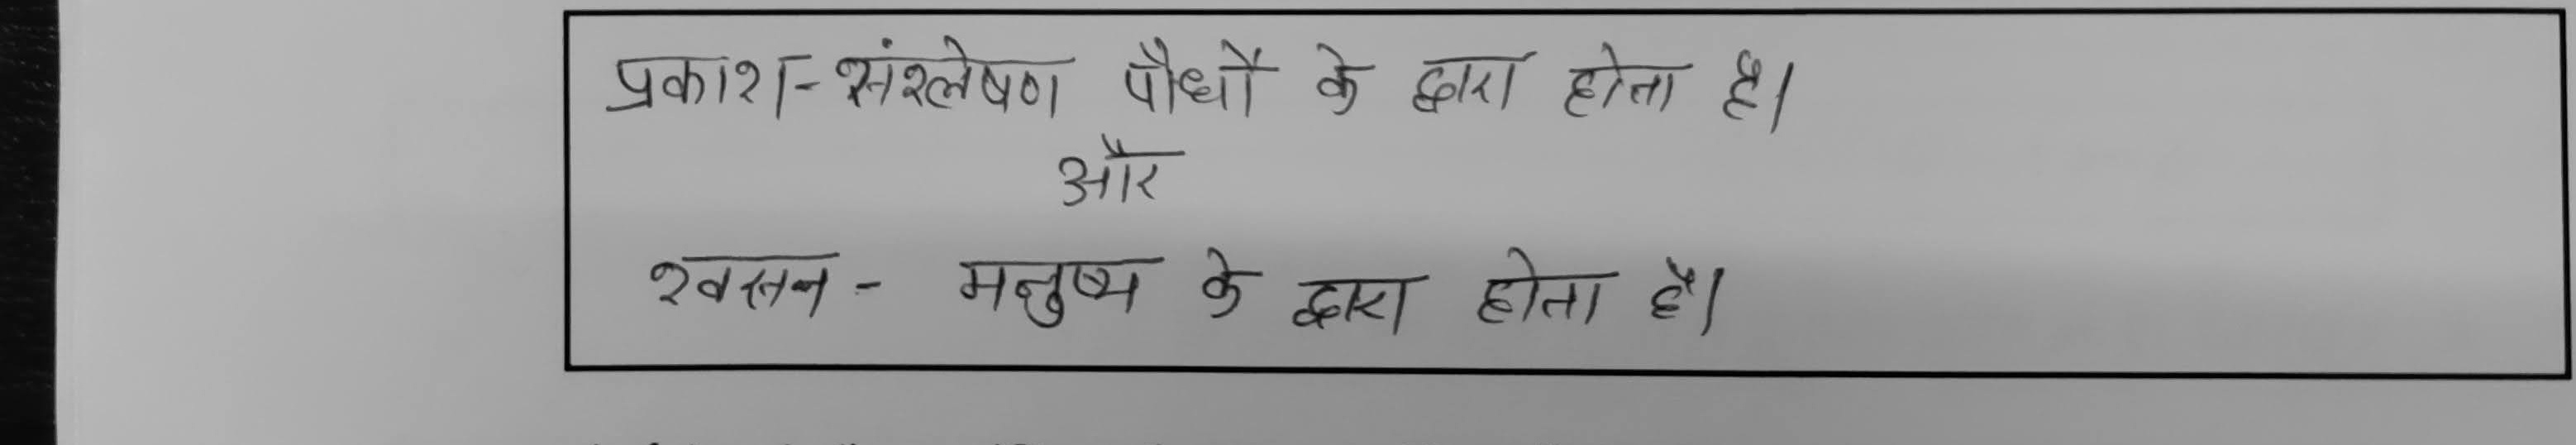 प्रकाश-संश्लेषण पौधौ के द्वारा होता है।
और
श्वसन - मनुष्य के द्वारा होता है।